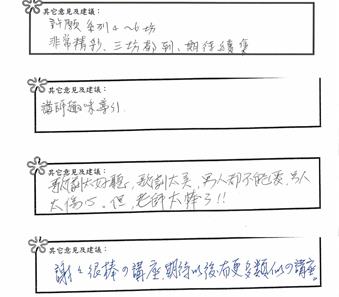 其它意見及建議：
許願系列4~6坊
非常精彩、三坊都到、期待續集
其它意見及建議：
講師趣味導引
其它意見及建議：
歌劇太好聽，歌劇太美，男人都不能愛，男人
太傷心。但，老師太棒了!!
其它意見及建議：
謝々很棒の講座期待以後有更多類似の講座